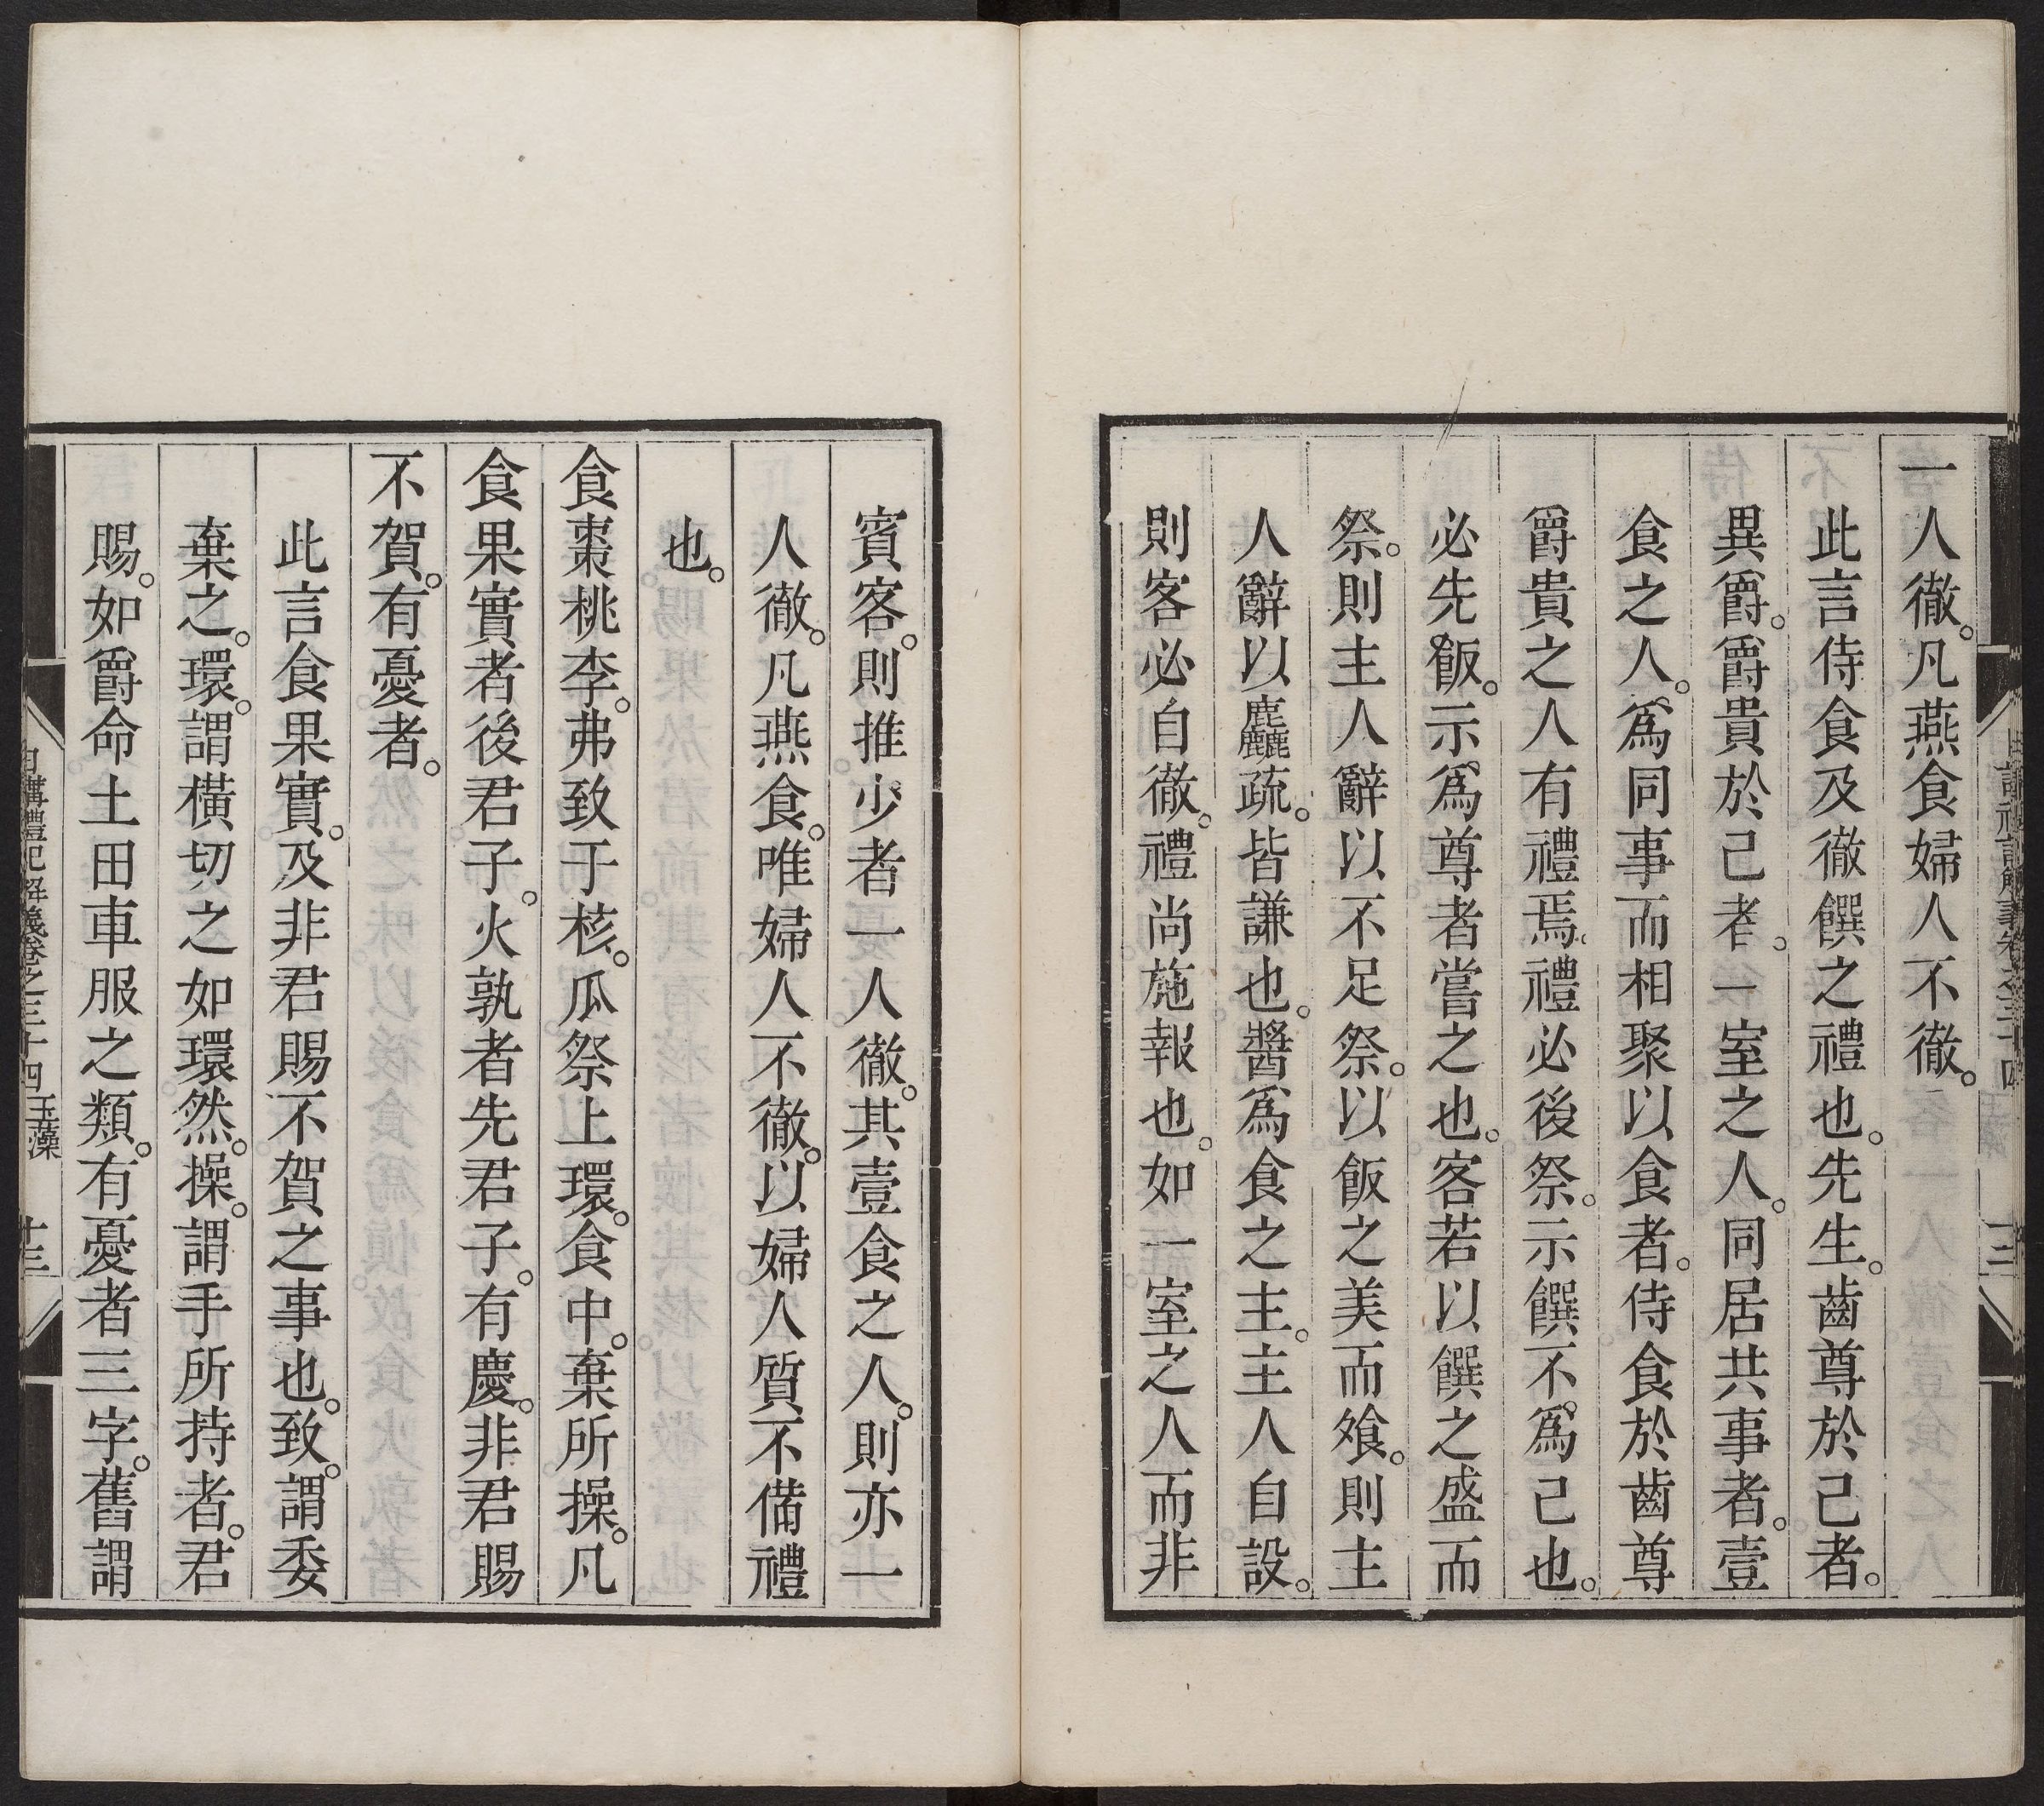 一人徹。凡燕食婦人不徹。
此言侍食及徹饌之禮也。先生。齒尊於己者。
異爵。爵貴於己者。一室之人。同居共事者。壹
食之人。爲同事而相聚以食者。侍食於齒尊
爵貴之人有禮焉。禮必後祭。示饌不爲己也。
必先飯。示爲尊者嘗之也。客若以饌之盛而
祭。則主人辭以不足祭。以飯之美而飧。則主
人辭以麤疏。皆謙也。醬爲食之主。主人自設。
則客必自徹。禮尚施報也。如一室之人而非
賓客。則推少者一人徹。其壹食之人。則亦一
人徹。凡燕食。唯婦人不徹。以婦人質不備禮
也。
食棗桃李。弗致于核。瓜祭上環。食中。棄所操。凡
食果實者後君子。火孰者先君子。有慶。非君賜
不賀。有憂者。
此言食果實。及非君賜不賀之事也。致。謂委
棄之。環。謂橫切之如環然。操。謂手所持者。君
賜。如爵命土田車服之類。有憂者三字。舊謂
日講禮記解義卷之三十四 玉藻 十三